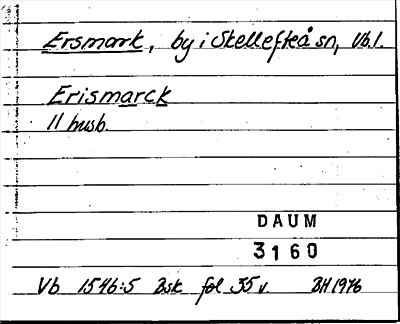 Ersmark, by i Skellefteå sn, Vb.l.
Erismarck
11 husb.
DAUM
3160
Vb 1546:5 Bsk fol 35 v. BH 1976